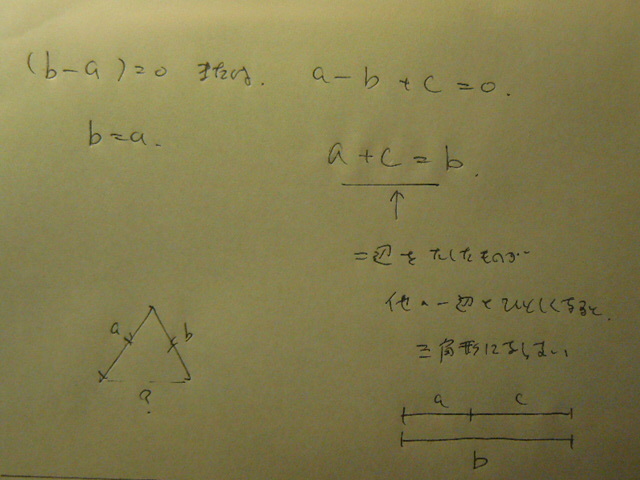 (b-a)=0 または. a-b+c=0.
b=a.
a+c=b.
↑
二辺をたしたものが
他の一辺とひとしくなると.
三角形にならない
a b
?
a c
b